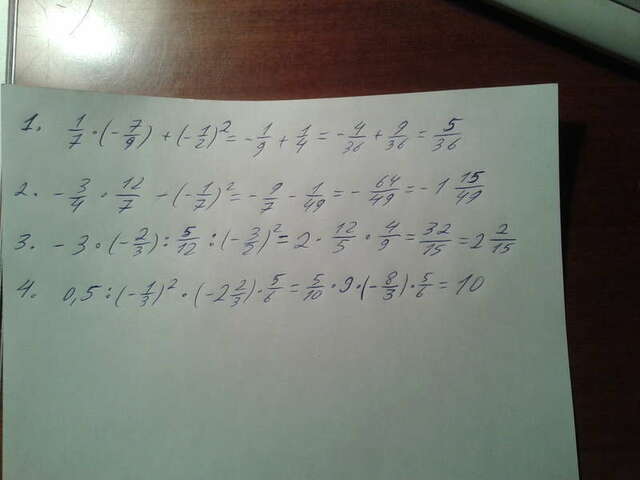 1. 1/7 · (-7/9) + (-1/2)² = -1/9 + 1/4 = -4/36 + 9/36 = 5/36
2. -3/4 · 12/7 - (-1/7)² = -9/7 - 1/49 = -64/49 = -1 15/49
3. -3 · (-2/3) : 5/12 : (-3/2)² = 2 · 12/5 · 4/9 = 32/15 = 2 2/15
4. 0,5 : (-1/3)² · (-2 2/3) · 5/6 = 5/10 · 9 · (-8/3) · 5/6 = 10